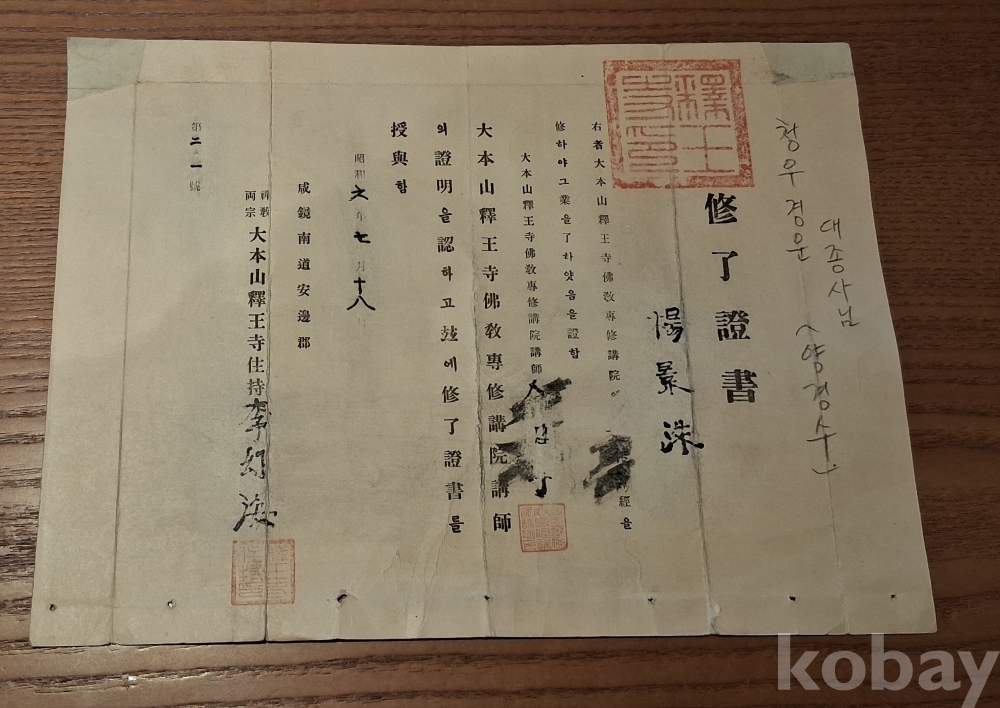 대종사님
청우경운 (양경수)
修了證書
楊景洙
右者大本山釋王寺佛敎專修講院에 經을
修하야그業을了하얏음을證함
大本山釋王寺佛敎專修講院講師
大本山釋王寺佛敎專修講院講師
의證明을認하고玆에修了證書를
授與함
昭和六年七月十八
咸鏡南道安邊郡
禪敎
両宗
大本山釋王寺住持李幻海
第二 一號
釋王寺印
kobay